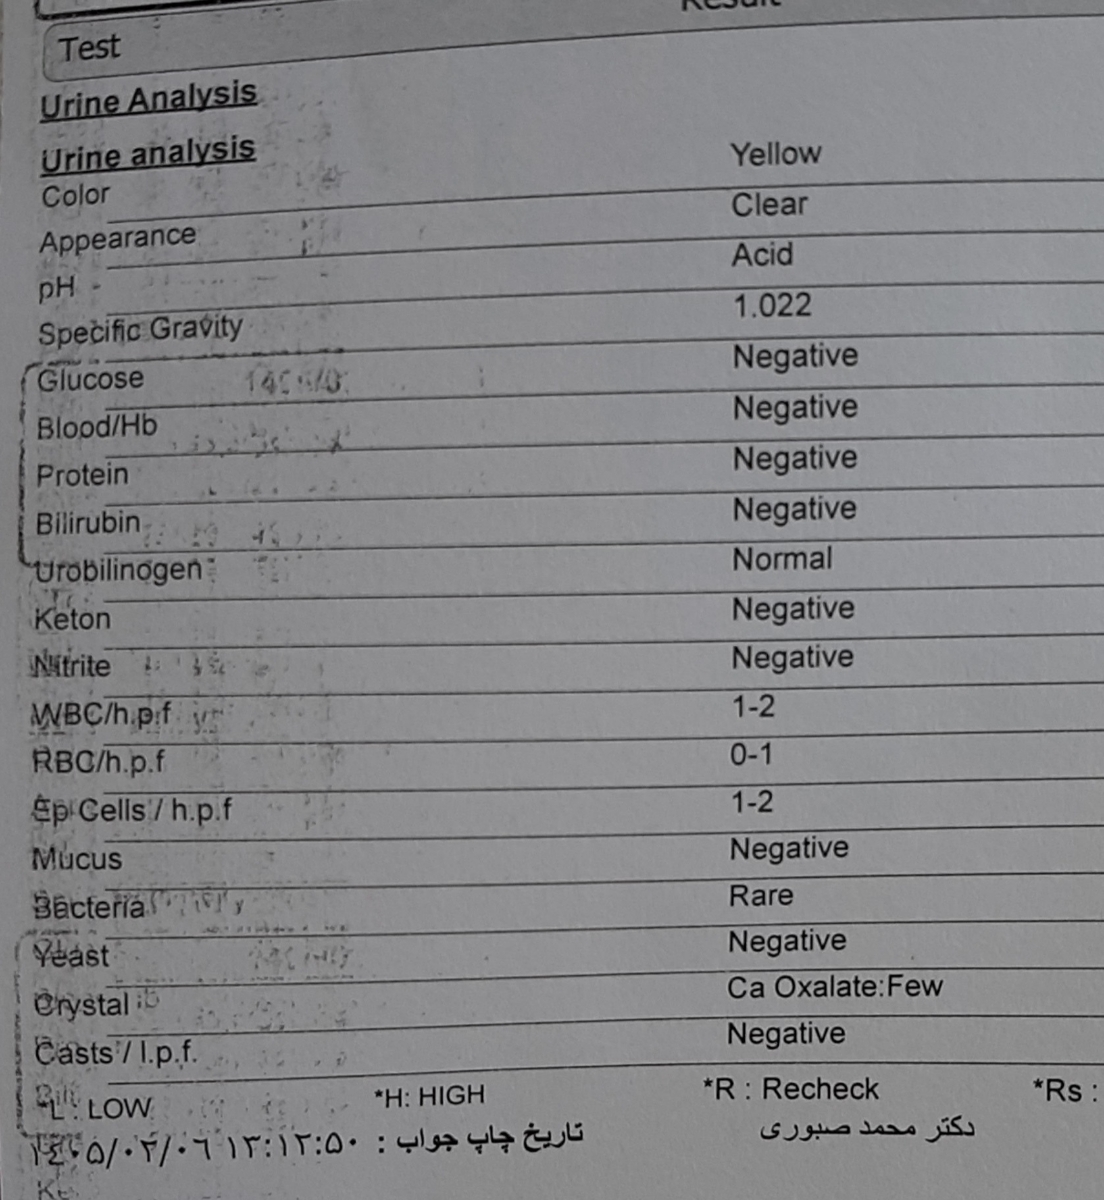 Result
Test
Urine Analysis
Urine analysis
Color Yellow
Appearance Clear
pH Acid
Specific Gravity 1.022
Glucose Negative
Blood/Hb Negative
Protein Negative
Bilirubin Negative
Urobilinogen Normal
Keton Negative
Nitrite Negative
WBC/h.p.f 1-2
RBC/h.p.f 0-1
Ep Cells / h.p.f 1-2
Mucus Negative
Bacteria Rare
Yeast Negative
Crystal Ca Oxalate:Few
Casts / l.p.f. Negative
*L : LOW *H: HIGH *R : Recheck *Rs :
تاریخ چاپ جواب : ۱۴۰۵/۰۲/۰۶ ۱۳:۱۲:۵۰ دکتر محمد صبوری